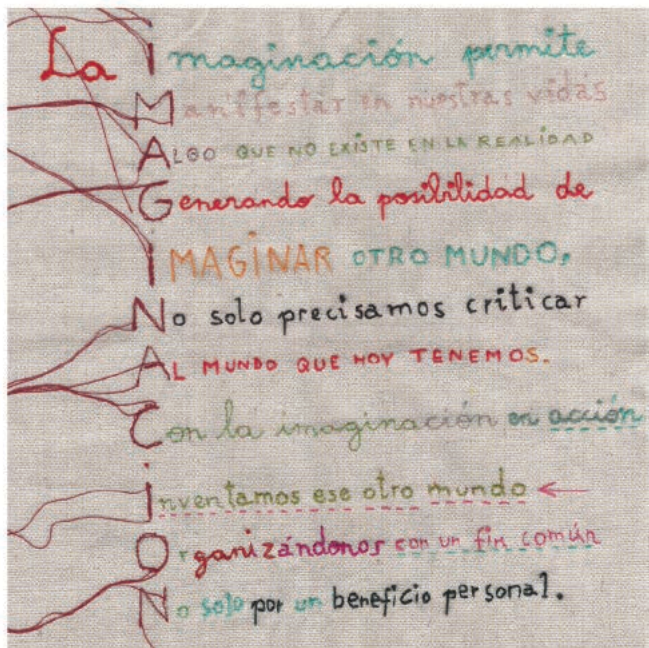 La imaginación permite
Manifestar en nuestras vidas
ALGO QUE NO EXISTE EN LA REALIDAD
Generando la posibilidad de
iMAGiNAR OTRO MUNDO.
No solo precisamos criticar
AL MUNDO QUE HOY TENEMOS.
Con la imaginación en acción
inventamos ese otro mundo ←
Organizándonos con un fin común
No solo por un beneficio personal.